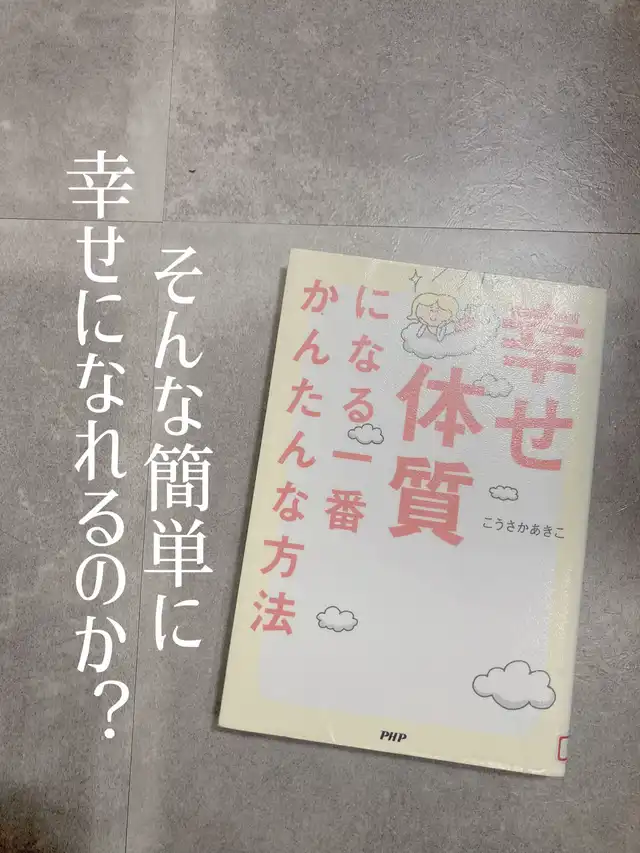 そんな簡単に
幸せになれるのか？
幸せ
体質
になる一番
かんたんな方法
こうさかあきこ
PHP